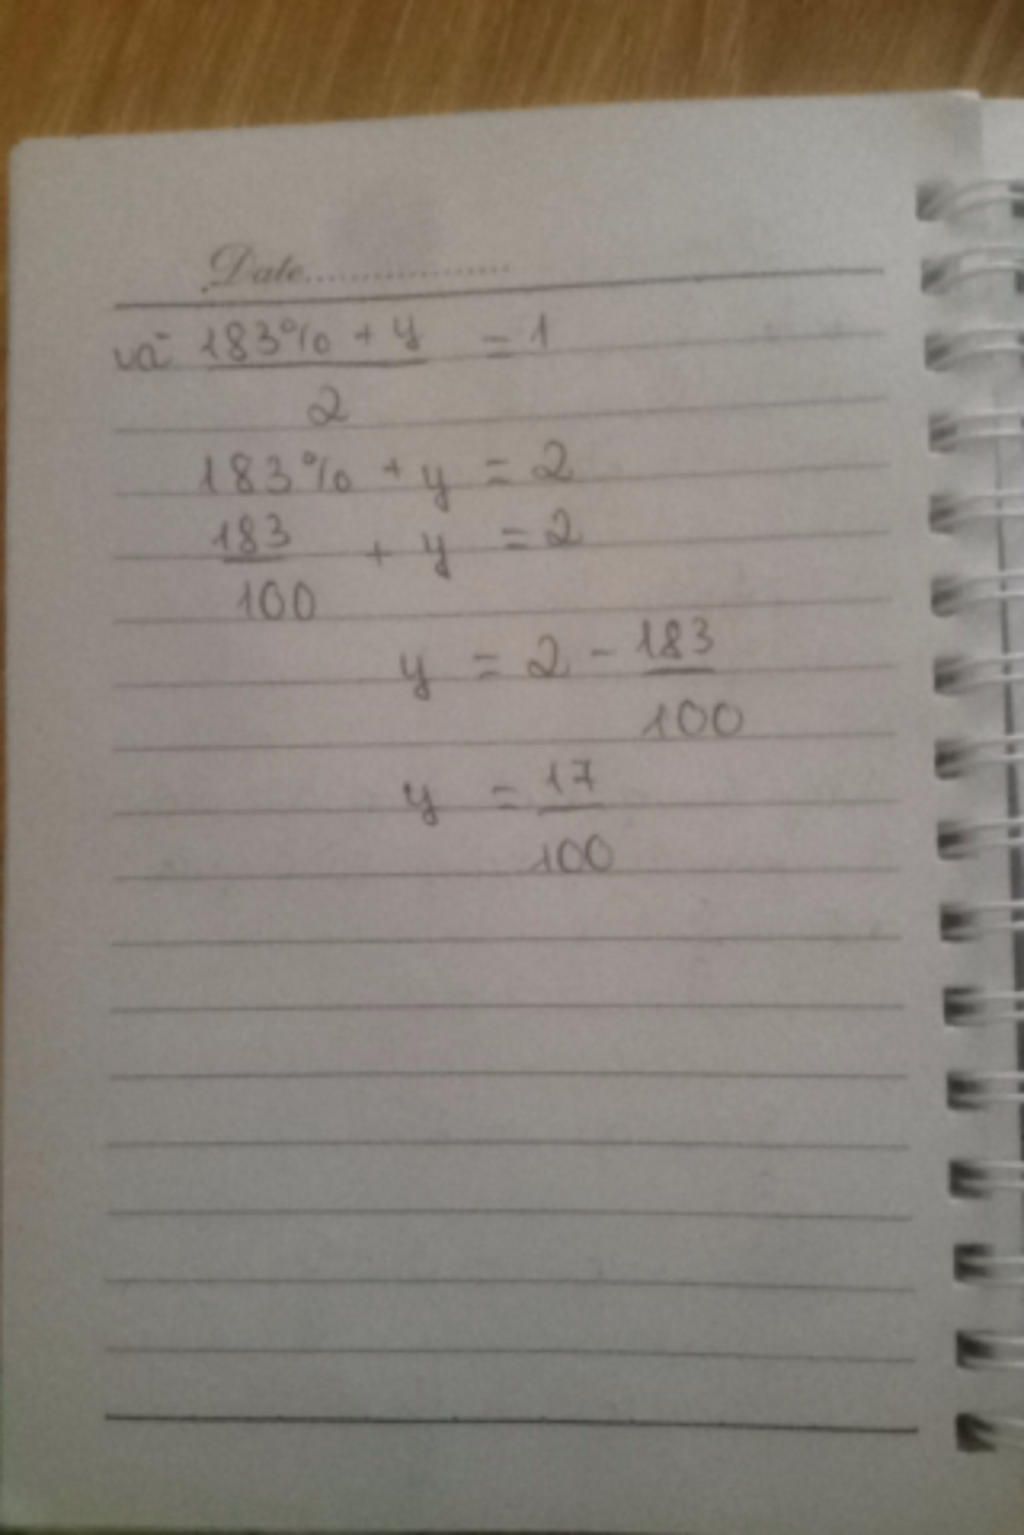 Date..................
và 183% + y = 1
2
183% + y = 2
183 + y = 2
100
y = 2 - 183
100
y = 17
100